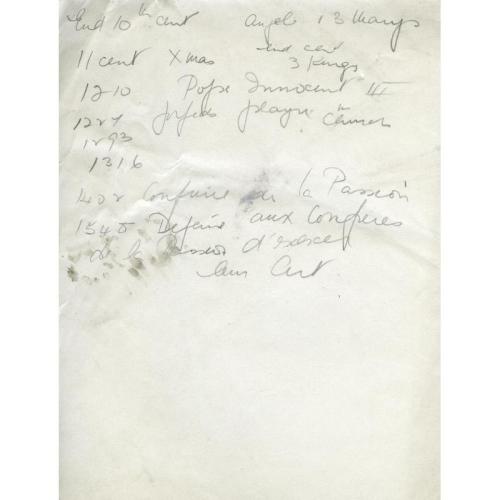 End 10th cent angel 3 Marys
11 cent Xmas 2nd cent
3 Kings
1210 Pope Innocent III
forbids playing in Church
1227
1293
1316
1402 Confrérie de la Passion
1548 Defense aux Confreres
de la Passion d'exercer
leur Art